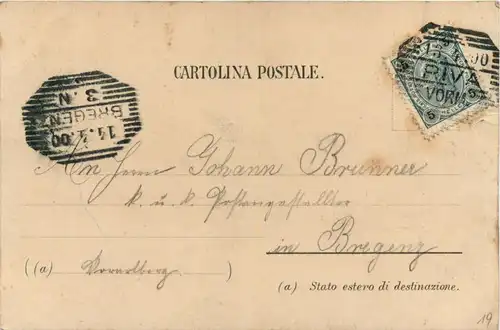 CARTOLINA POSTALE.
RIVA
VORM
5 5
BREGENZ
3. N
An Herrn Johann Brunner
k. u. k. Postangestellter
in Bregenz
((a) Vorarlberg )
(a) Stato estero di destinazione.
19